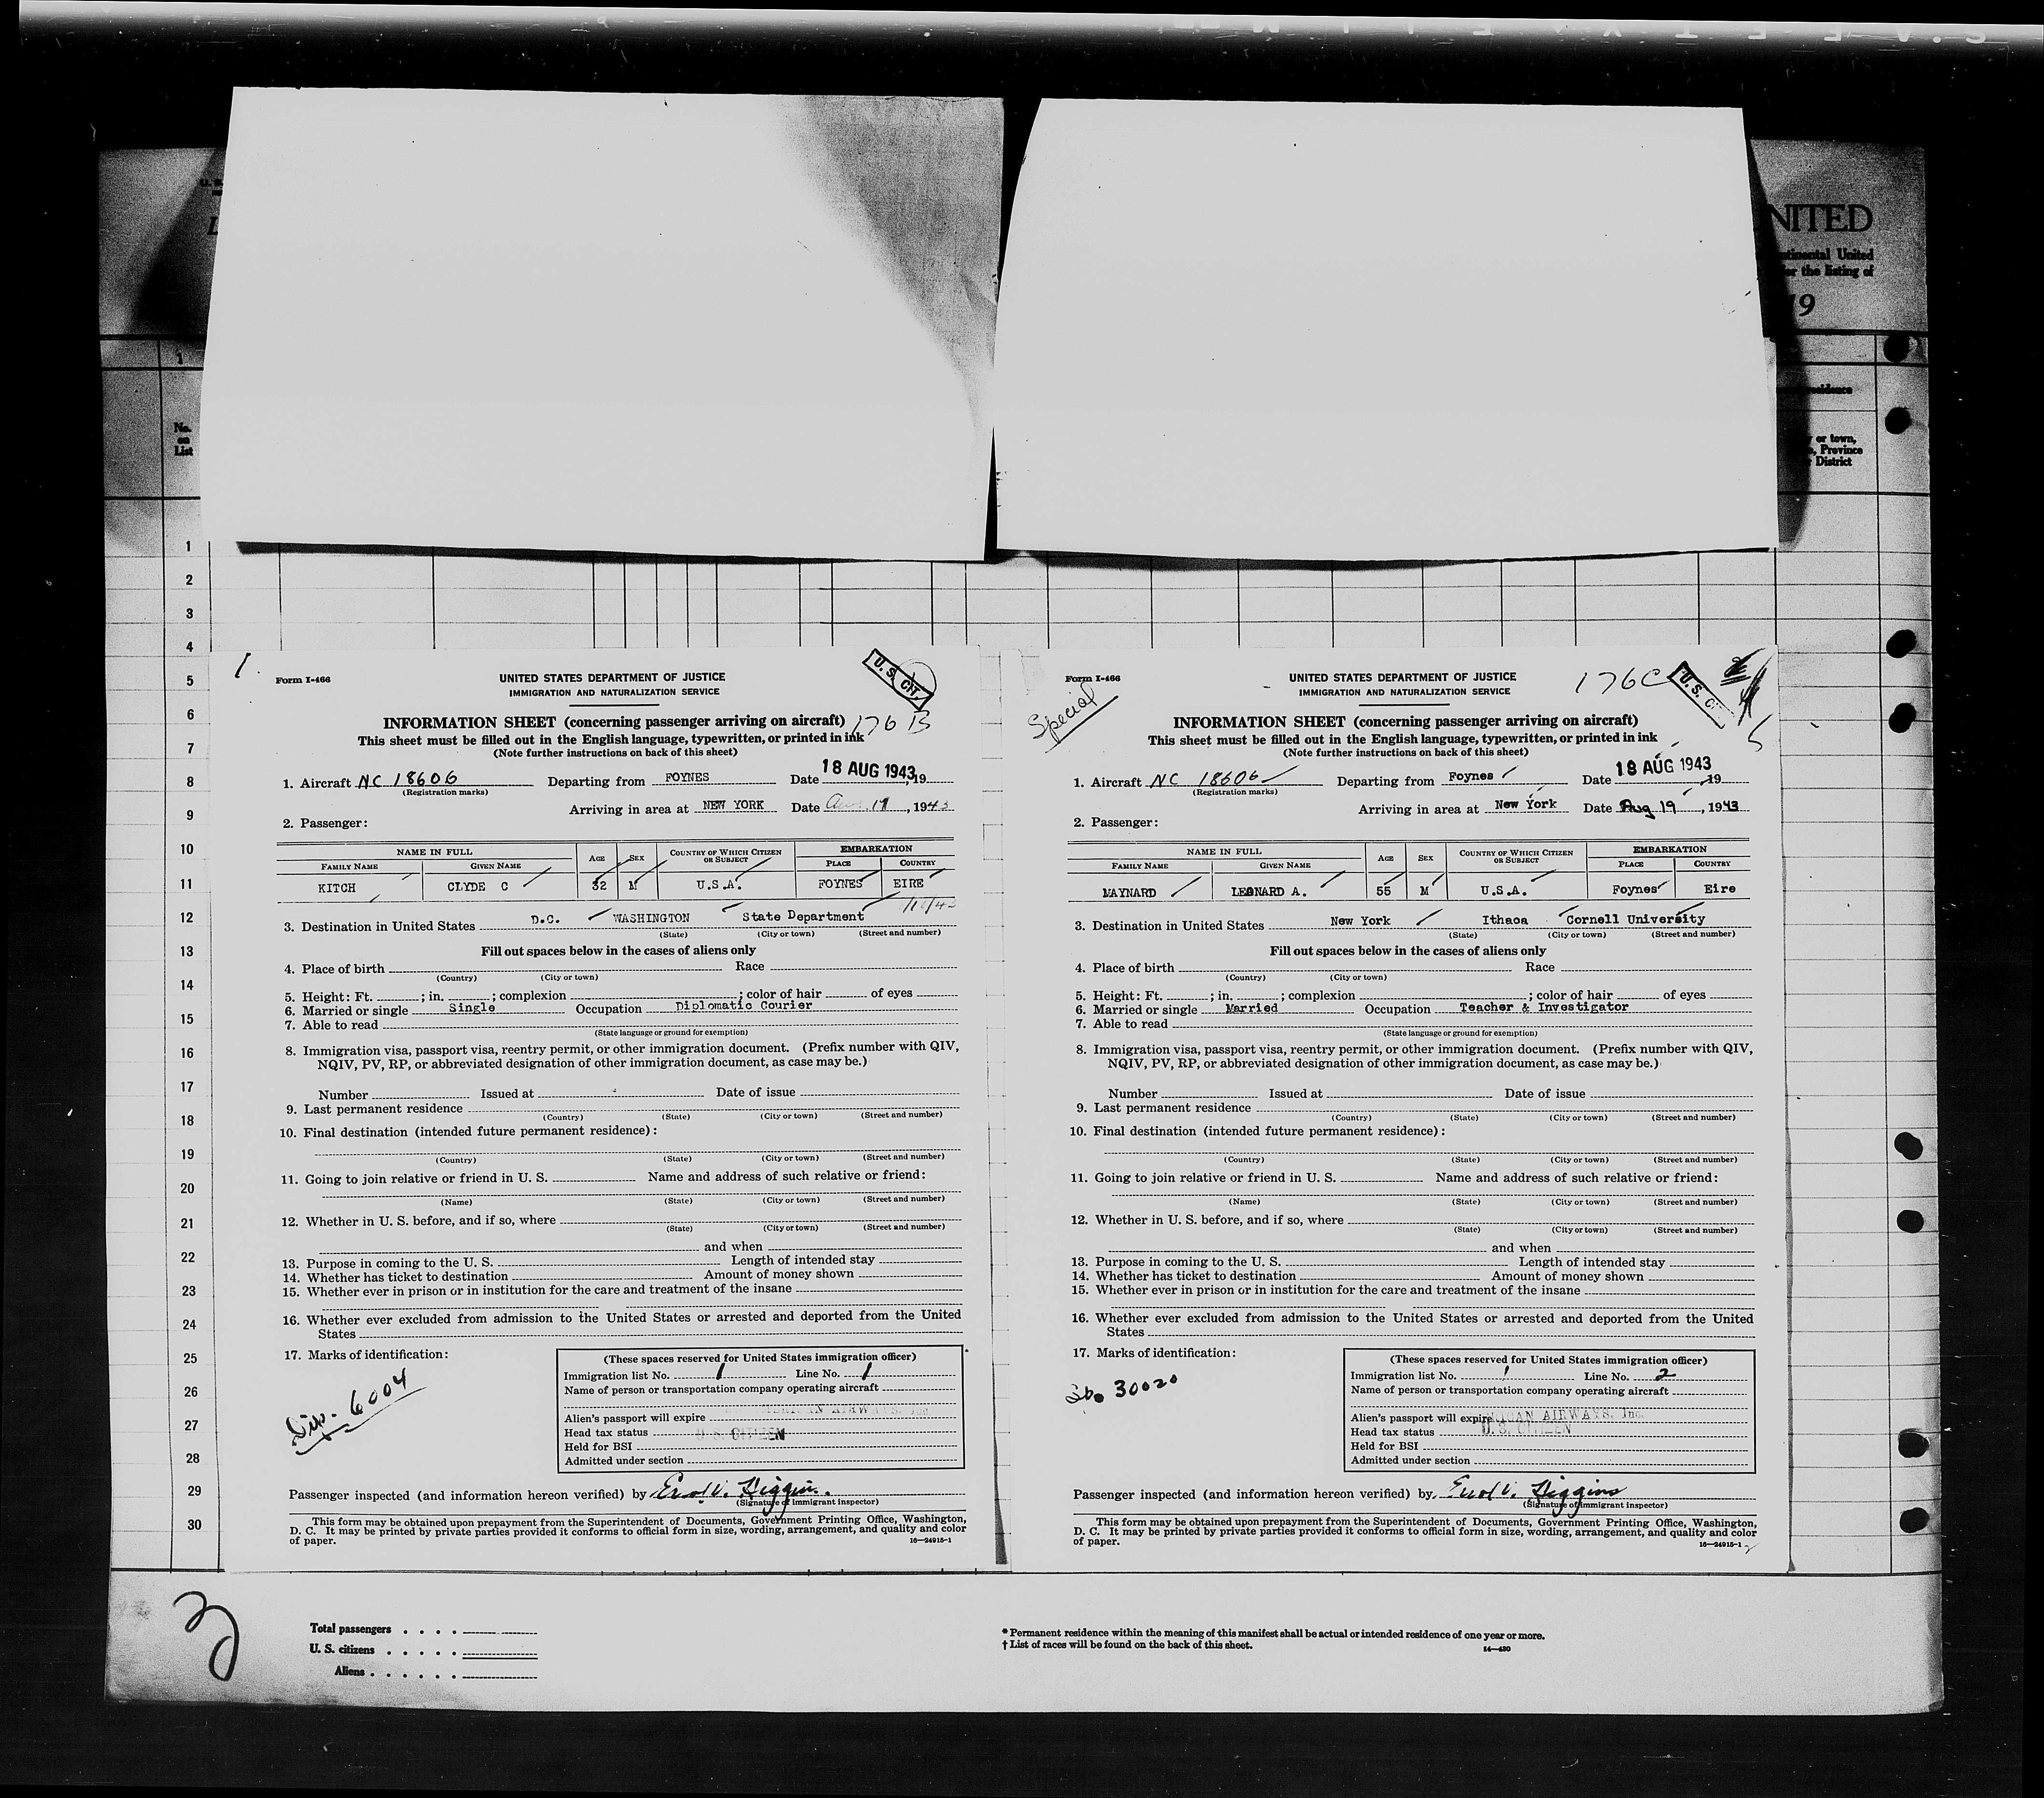 NITED
ntinental United
or the listing of
19
1
sidence
No.
on
List
or town,
Province
District
1
2
3
4
5
6
7
8
9
10
11
12
13
14
15
16
17
18
19
20
21
22
23
24
25
26
27
28
29
30
1
Form I-466
UNITED STATES DEPARTMENT OF JUSTICE
IMMIGRATION AND NATURALIZATION SERVICE
U. S. CIT.
176 B
INFORMATION SHEET (concerning passenger arriving on aircraft)
This sheet must be filled out in the English language, typewritten, or printed in ink
(Note further instructions on back of this sheet)
1. Aircraft NC 18606 Departing from FOYNES Date 18 AUG 1943, 19
(Registration marks)
Arriving in area at NEW YORK Date Aug 19, 1943
2. Passenger:
NAME IN FULL AGE SEX COUNTRY OF WHICH CITIZEN OR SUBJECT EMBARKATION
FAMILY NAME GIVEN NAME PLACE COUNTRY
KITCH CLYDE C 32 M U.S.A. FOYNES EIRE
3. Destination in United States D.C. WASHINGTON State Department
(State) (City or town) (Street and number)
Fill out spaces below in the cases of aliens only
4. Place of birth Race
(Country) (City or town)
5. Height: Ft. ; in. ; complexion ; color of hair of eyes
6. Married or single Single Occupation Diplomatic Courier
7. Able to read
(State language or ground for exemption)
8. Immigration visa, passport visa, reentry permit, or other immigration document. (Prefix number with QIV,
NQIV, PV, RP, or abbreviated designation of other immigration document, as case may be.)
Number Issued at Date of issue
9. Last permanent residence
(Country) (State) (City or town) (Street and number)
10. Final destination (intended future permanent residence):
(Country) (State) (City or town) (Street and number)
11. Going to join relative or friend in U. S. Name and address of such relative or friend:
(Name) (State) (City or town) (Street and number)
12. Whether in U. S. before, and if so, where
(State) (City or town) (Street and number)
and when
13. Purpose in coming to the U. S. Length of intended stay
14. Whether has ticket to destination Amount of money shown
15. Whether ever in prison or in institution for the care and treatment of the insane
16. Whether ever excluded from admission to the United States or arrested and deported from the United
States
17. Marks of identification:
Dip. 6004
(These spaces reserved for United States immigration officer)
Immigration list No. 1 Line No. 1
Name of person or transportation company operating aircraft
AIRWAYS, Inc.
Alien's passport will expire
Head tax status U. S. CITIZEN
Held for BSI
Admitted under section
Passenger inspected (and information hereon verified) by Errol V. Higgins
(Signature of immigrant inspector)
This form may be obtained upon prepayment from the Superintendent of Documents, Government Printing Office, Washington,
D. C. It may be printed by private parties provided it conforms to official form in size, wording, arrangement, and quality and color
of paper.
16—24915-1
Form I-466
Special
UNITED STATES DEPARTMENT OF JUSTICE
IMMIGRATION AND NATURALIZATION SERVICE
176C
U. S. C
5
INFORMATION SHEET (concerning passenger arriving on aircraft)
This sheet must be filled out in the English language, typewritten, or printed in ink
(Note further instructions on back of this sheet)
1. Aircraft NC 18606 Departing from Foynes Date 18 AUG 1943, 19
(Registration marks)
Arriving in area at New York Date Aug 19, 1943
2. Passenger:
NAME IN FULL AGE SEX COUNTRY OF WHICH CITIZEN OR SUBJECT EMBARKATION
FAMILY NAME GIVEN NAME PLACE COUNTRY
MAYNARD LEONARD A. 55 M U.S.A. Foynes Eire
3. Destination in United States New York Ithaca Cornell University
(State) (City or town) (Street and number)
Fill out spaces below in the cases of aliens only
4. Place of birth Race
(Country) (City or town)
5. Height: Ft. ; in. ; complexion ; color of hair of eyes
6. Married or single Married Occupation Teacher & Investigator
7. Able to read
(State language or ground for exemption)
8. Immigration visa, passport visa, reentry permit, or other immigration document. (Prefix number with QIV,
NQIV, PV, RP, or abbreviated designation of other immigration document, as case may be.)
Number Issued at Date of issue
9. Last permanent residence
(Country) (State) (City or town) (Street and number)
10. Final destination (intended future permanent residence):
(Country) (State) (City or town) (Street and number)
11. Going to join relative or friend in U. S. Name and address of such relative or friend:
(Name) (State) (City or town) (Street and number)
12. Whether in U. S. before, and if so, where
(State) (City or town) (Street and number)
and when
13. Purpose in coming to the U. S. Length of intended stay
14. Whether has ticket to destination Amount of money shown
15. Whether ever in prison or in institution for the care and treatment of the insane
16. Whether ever excluded from admission to the United States or arrested and deported from the United
States
17. Marks of identification:
30020
(These spaces reserved for United States immigration officer)
Immigration list No. 1 Line No. 2
Name of person or transportation company operating aircraft
AIRWAYS, Inc.
Alien's passport will expire
Head tax status U. S. CITIZEN
Held for BSI
Admitted under section
Passenger inspected (and information hereon verified) by Errol V. Higgins
(Signature of immigrant inspector)
This form may be obtained upon prepayment from the Superintendent of Documents, Government Printing Office, Washington,
D. C. It may be printed by private parties provided it conforms to official form in size, wording, arrangement, and quality and color
of paper.
16—24915-1
Total passengers . . . .
U. S. citizens . . . . .
Aliens . . . . . .
* Permanent residence within the meaning of this manifest shall be actual or intended residence of one year or more.
† List of races will be found on the back of this sheet.
14—420